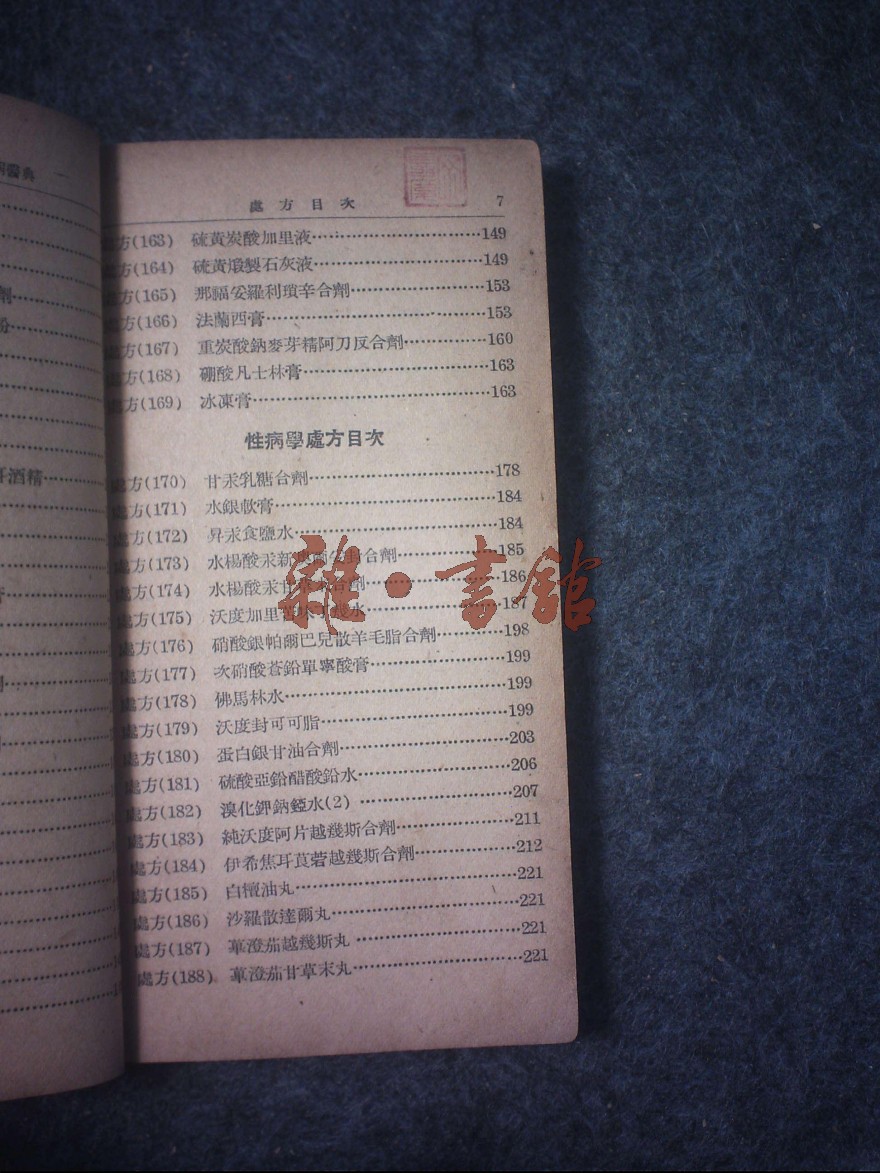 醫典 一
劑
粉
酒精
處方目次 7
處方(163) 硫黃炭酸加里液 149
處方(164) 硫黃煅製石灰液 149
處方(165) 那福妥羅利瑣辛合劑 153
處方(166) 法蘭西膏 153
處方(167) 重炭酸鈉麥芽精阿刀反合劑 160
處方(168) 硼酸凡士林膏 163
處方(169) 冰凍膏 163
性病學處方目次
處方(170) 甘汞乳糖合劑 178
處方(171) 水銀軟膏 184
處方(172) 昇汞食鹽水 184
處方(173) 水楊酸汞新 合劑 185
處方(174) 水楊酸汞甘 合劑 186
處方(175) 沃度加里 幾水 187
處方(176) 硝酸銀帕爾巴兒散羊毛脂合劑 198
處方(177) 次硝酸蒼鉛單寧酸膏 199
處方(178) 佛馬林水 199
處方(179) 沃度封可可脂 199
處方(180) 蛋白銀甘油合劑 203
處方(181) 硫酸亞鉛醋酸鉛水 206
處方(182) 溴化鉀鈉錏水(2) 207
處方(183) 純沃度阿片越幾斯合劑 211
處方(184) 伊希焦耳莨菪越幾斯合劑 212
處方(185) 白檀油丸 221
處方(186) 沙羅散達爾丸 221
處方(187) 蓽澄茄越幾斯丸 221
處方(188) 蓽澄茄甘草末丸 221
雜·書館